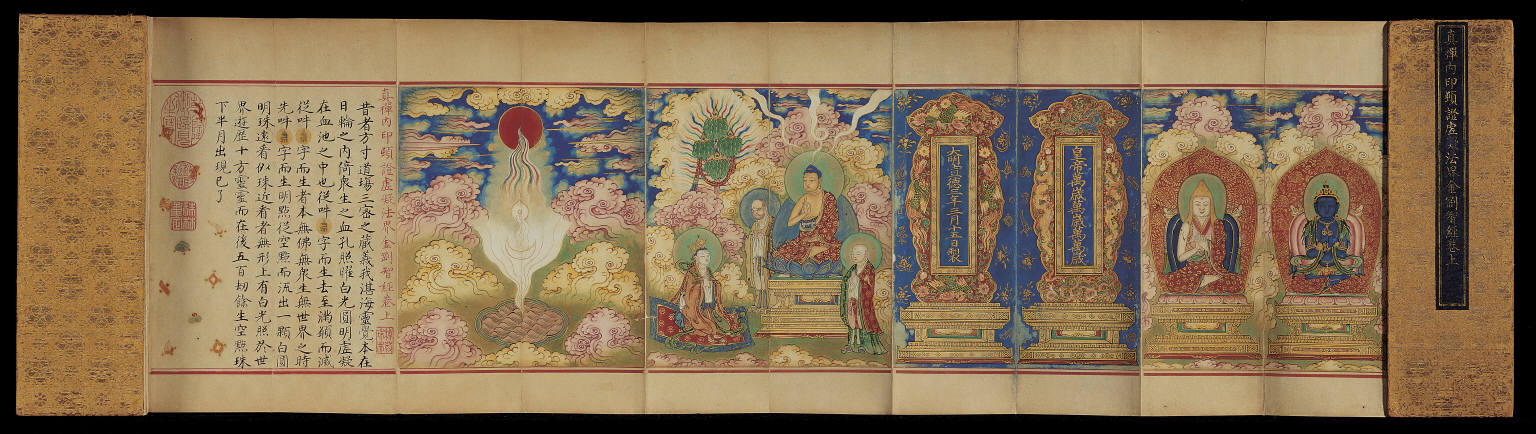 真禪內印頓證虛凝法界金剛智經卷上
皇帝萬歲萬歲萬萬歲
大明宣德三年三月十五日製
真禪內印頓證虛凝法界金剛智經卷上
昔者方寸道場三密之藏義我湛海靈覺本在
日輪之內倚衆生之血孔照曜白光圓明虛凝
在血池之中也從吽字而生去至滿顖而滅
從吽字而生者本無佛無衆生無世界之時
先吽字而生明點從空點而流出一顆白圓
明珠遠看似珠近看者無形上有白光照於世
界遊歷十方靈靈而在後五百劫餘生空點珠
下半月出現已了